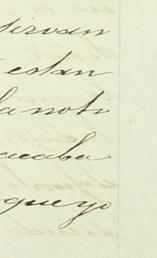 sirvan
estan
la noti
acaba
que yo